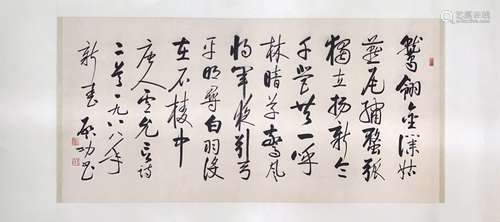 鷲翎金僕姑
燕尾繡蝥弧
獨立揚新令
千營共一呼
林暗草驚風
將軍夜引弓
平明尋白羽沒
在石棱中
唐人盧允言詩
二首一九八八年
新春 啟功書